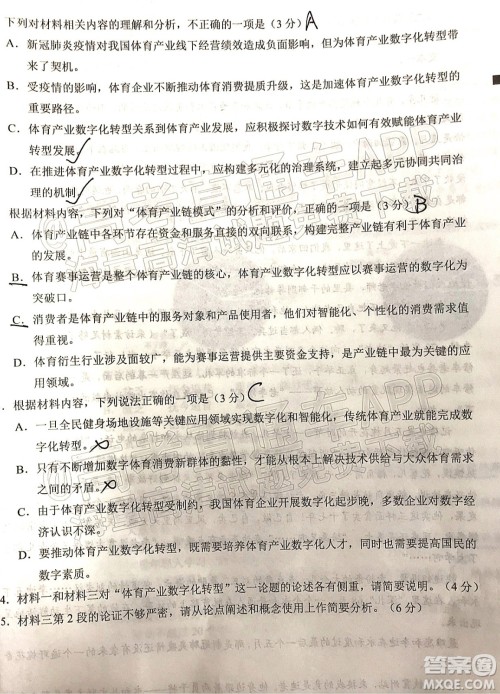 下列对材料相关内容的理解和分析，不正确的一项是（3分）A
A．新冠肺炎疫情对我国体育产业线下经营绩效造成负面影响，但也为体育产业数字化转型带
来了契机。
B．受疫情的影响，体育企业不断推动体育消费提质升级，这是加速体育产业数字化转型的
重要路径。
C．体育产业数字化转型关系到体育产业发展，应积极探讨数字技术如何有效赋能体育产业
转型发展。
D．在推进体育产业数字化转型过程中，应构建多元化的治理系统，建立起多元协同共同治
理的机制。
根据材料内容，下列对“体育产业链模式”的分析和评价，正确的一项是（3分）B
A．体育产业链中各环节存在资金和服务直接的双向联系，构建完整产业链有利于体育产业
的发展。
B．体育赛事运营是整个体育产业链的核心，体育产业数字化转型应以赛事运营数字化为
突破口。
C．消费者是体育产业链中的服务对象和产品使用者，他们对智能化、个性化的消费需求值
得重视。
D．体育衍生行业涉及面较广，能为赛事运营提供主要资金支持，是产业链中最为关键的应
用领域。
．根据材料内容，下列说法正确的一项是（3分）C
A．一旦全民健身场地设施等关键应用领域实现数字化和智能化，传统体育产业就能完成数
字化转型。
B．只有不断增加数字体育消费新群体的黏性，才能从根本上解决技术供给与大众体育需求
之间的矛盾。
C．由于体育产业数字化转型受制约，我国体育企业开展数字化起步晚，多数企业对数字经
济认识不深。
D．要推动体育产业数字化转型，既需要完善体育产业相关政策，也需要提高国民的
数字素质。
4．材料一和材料三对“体育产业数字化转型”这一论题的论述各有侧重，请简要说明。（4分）
5．材料三第2段的论证不够严密，请从论点阐述和概念使用上作简要分析。（6分）
高考直通车APP
海量高清试题免费下载
高考直通车APP
海量高清试题免费下载
答案圈
MXQE.COM